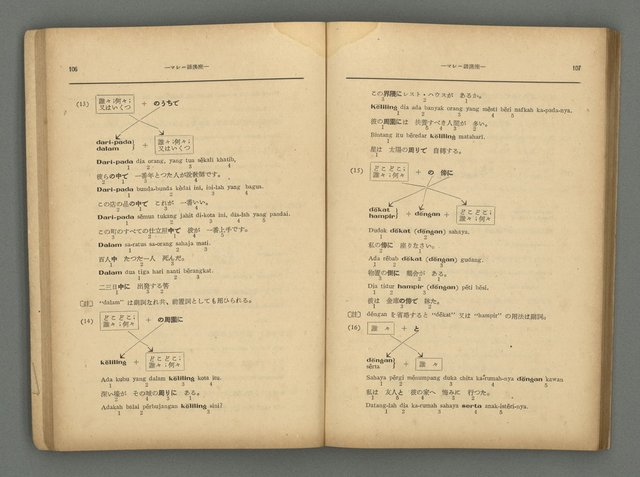 106
—マレー語講座—
(13)
誰々;何々;
又はいくつ
+ のうちで
dari-pada
dalam
誰々;何々;
又はいくつ
Dari-pada dia orang, yang tua sĕkali khatib,
彼らの中で 一番年とつた人が説教師です。
Dari-pada bunda-bunda kĕdai ini, ini-lah yang bagus.
この店の品の中で これが 一番いい。
Dari-pada sĕmua tukang jahit di-kota ini, dia-lah yang pandai.
この町のすべての仕立屋中で 彼が 一番上手です。
Dalam sa-ratus sa-orang sahaja mati.
百人中 たつた一人 死んだ。
Dalam dua tiga hari nanti bĕrangkat.
二三日中に 出發する筈
[註] "dalam" は副詞なれ共、前置詞としても用ひられる。
(14)
どこどこ;
誰々;何々
+ の周圍に
kĕliling
どこどこ;
誰々;何々
Ada kubu yang dalam kĕliling kota itu.
深い壕が その城の周りに ある。
Adakah balai perbujangan kĕliling sini?
107
—マレー語講座—
この界隈にレスト・ハウスが あるか。
Kĕliling dia ada banyak orang yang mĕsti bĕri nafkah ka-pada-nya.
彼の周圍には 扶養すべき人間が 多い。
Bintang itu bĕredar kĕliling matahari.
星は 太陽の周りで 自轉する。
(15)
どこどこ;
誰々;何々
+ の 傍に
dĕkat
hampir
+ dĕngan +
どこどこ;
誰々;何々
Dudok dĕkat (dĕngan) sahaya.
私の傍に 座りなさい。
Ada rĕbab dĕkat (dĕngan) gudang.
物置の傍に 鶏舎が ある。
Dia tidur hampir (dĕngan) pĕti bĕsi.
彼は 金庫の傍で 眠た。
[註] dĕngan を省略すると "dĕkat" 又は "hampir" の用法は副詞。
(16)
誰 々
+ と
dĕngan
sĕrta
+ 誰 々
Sahaya pĕrgi mĕnumpang duka chita ka-rumah-nya dĕngan kawan
私は 友人と 彼の家へ 悔みに 行つた。
Datang-lah dia ka-rumah sahaya serta anak-istĕri-nya.